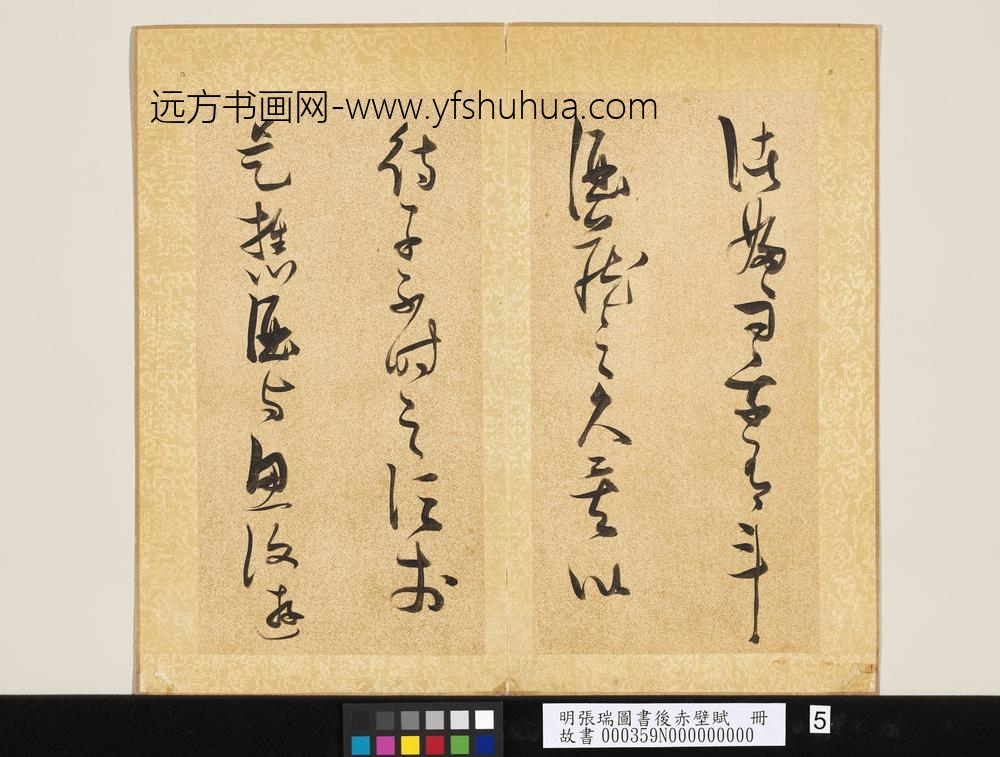 远方书画网-www.yfshuhua.com
諸婦〻曰我有斗
酒藏之久矣以
待子不時之須於
是攜酒與魚復遊
明張瑞圖書後赤壁賦 冊
故書000359N000000000
5